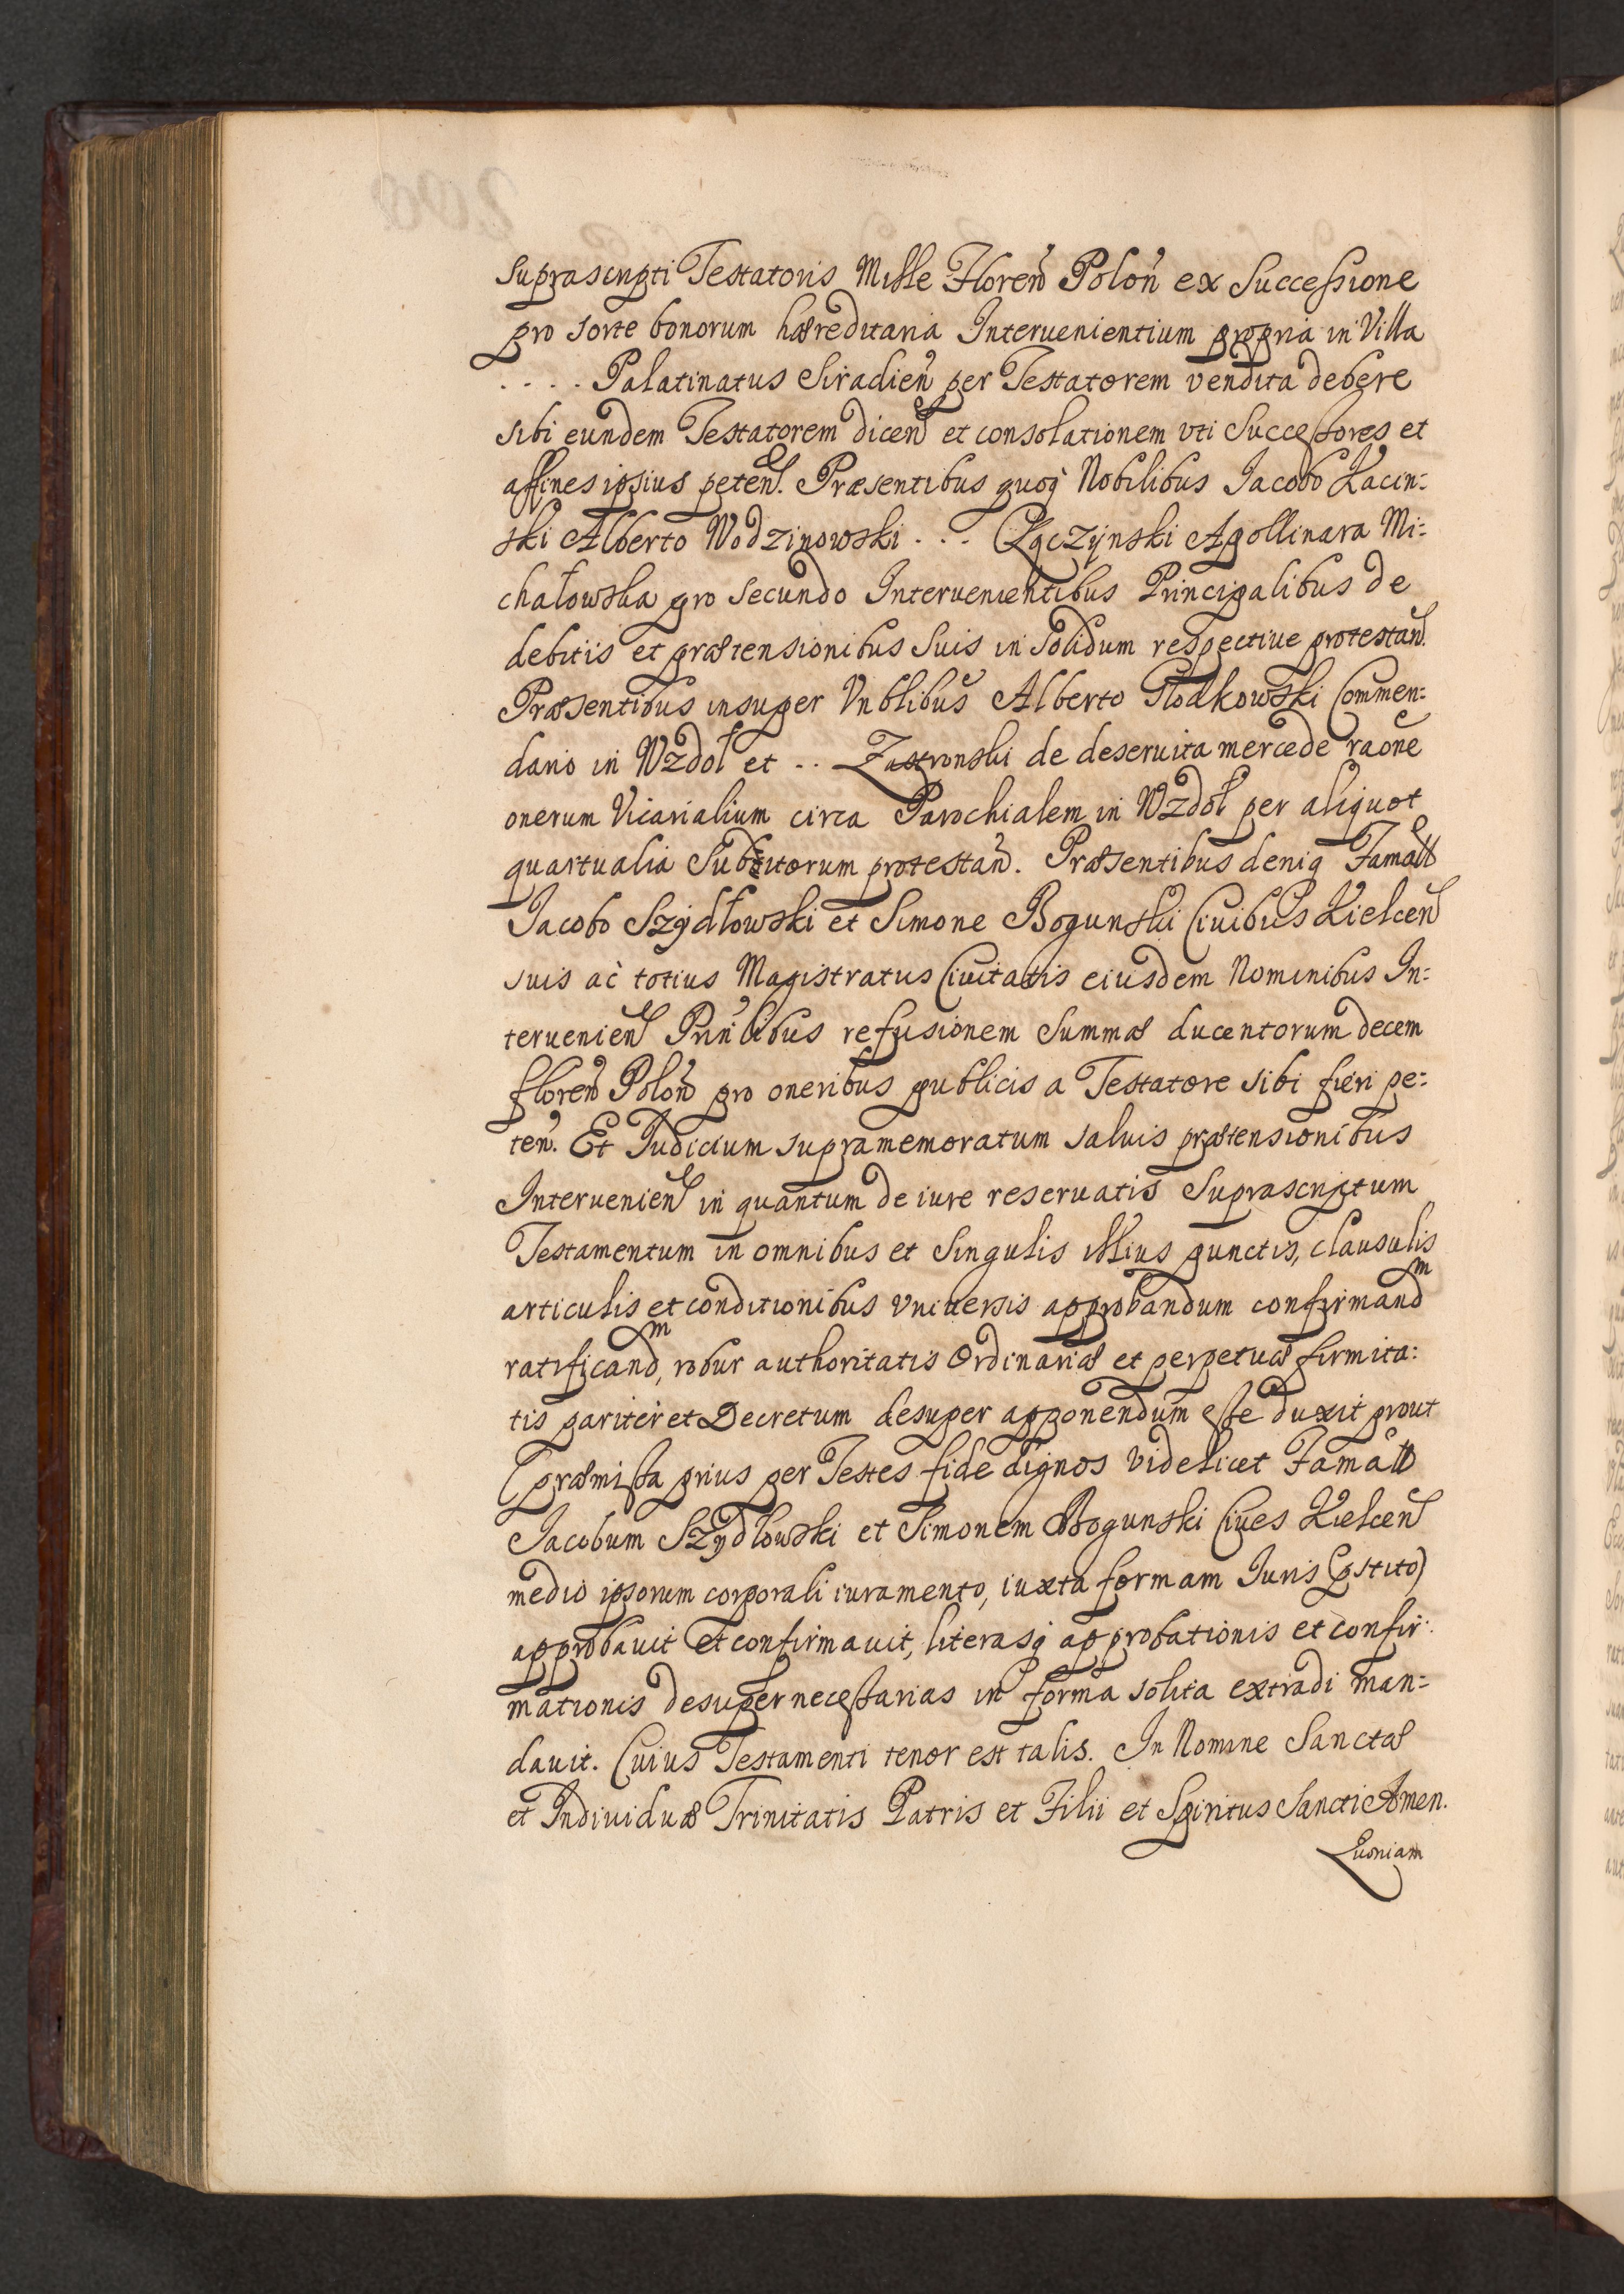 suprascripti Testatoris Mille Floreñ Poloñ ex Successione
pro sorte bonorum hæreditaria Interuenientium propria in Villa
.... Palatinatus Siradieñ per Testatorem vendita debere
sibi eundem Testatorem diceñ et consolationem vti Successores et
affines ipsius peteñ. Præsentibus quoq̀ Nobilibus Jacobo Łacin:
ski Alberto Wodzinowski ... Łączynski Apollinara Mi:
chałowska pro secundo Interuenientibus Principalibus de
debitis et prætensionibus suis in solidum respectiue protestañ.
Præsentibus insuper Vnblibus Alberto Płodkowski Commen:
dario in Wzdoł et .. Zastronski de deseruita mercede raone
onerum Vicarialium circa Parochialem in Wzdoł per aliquot
quartualia Subditorum protestañ. Præsentibus deniq Famatt
Jacobo Szydłowski et Simone Bogunski Ciuibus Kielceñ
suis ac totius Magistratus Ciuitatis eiusdem Nominibus In:
teruenieñ Prinlibus refusionem Summæ ducentorum decem
floreñ Poloñ pro oneribus publicis a Testatore sibi fieri pe:
teñ. Et Judicium supramemoratum saluis prætensionibus
Interuenieñ in quantum de iure reseruatis Suprascriptum
Testamentum in omnibus et Singulis illius punctis, clausulis
articulis et conditionibus vniuersis approbandum confirmandᵐ
ratificandᵐ, robur authoritatis Ordinariæ et perpetuæ firmita:
tis pariter et Decretum desuper apponendum esse duxit prout
præmissa prius per Testes fide dignos videlicet Famatt
Jacobum Szydłowski et Simonem Bogunski Ciues Kielceñ
medio ipsorum corporali iuramento, iuxta formam Iuris (pstito)
approbauit et confirmauit, literasq̀ approbationis et confir:
mationis desuper necessarias in forma solita extradi man:
dauit. Cuius Testamenti tenor est talis. In Nomine Sanctæ
et Indiuiduæ Trinitatis Patris et Filii et Spiritus Sancti Amen.
Quoniam